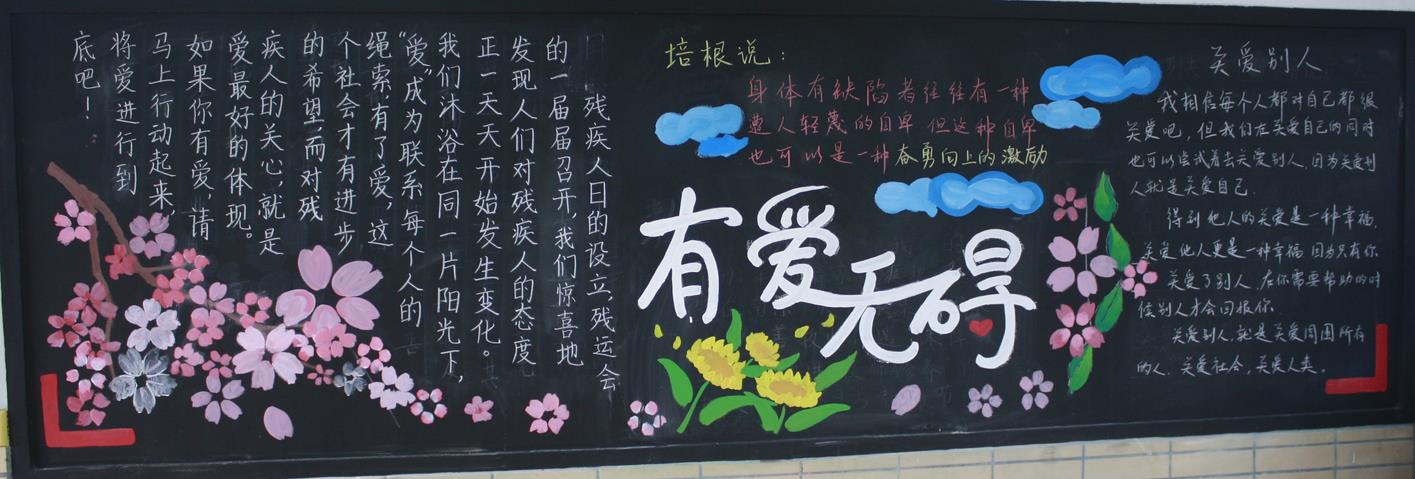 残疾人日的设立,残运会
的一届届召开,我们惊喜地
发现人们对残疾人的态度
正一天天开始发生变化。
我们沐浴在同一片阳光下,
“爱”成为联系每个人的
绳索有了爱,这
个社会才有进步
的希望而对残
疾人的关心,就是
爱最好的体现。
如果你有爱,请
马上行动起来,
将爱进行到
底吧!
培根说:
身体有缺陷者往往有一种
遭人轻蔑的自卑 但这种自卑
也可以是一种奋勇向上的激励
有爱无碍
关爱别人
我相信每个人都对自己都很
关爱吧,但我们在关爱自己的同时
也可以尝试着去关爱别人,因为关爱别
人就是关爱自己.
得到他人的关爱是一种幸福,
关爱他人更是一种幸福 因为只有你
关爱了别人,在你需要帮助的时
候别人才会回报你.
关爱别人,就是关爱周围所有
的人,关爱社会,关爱人类.